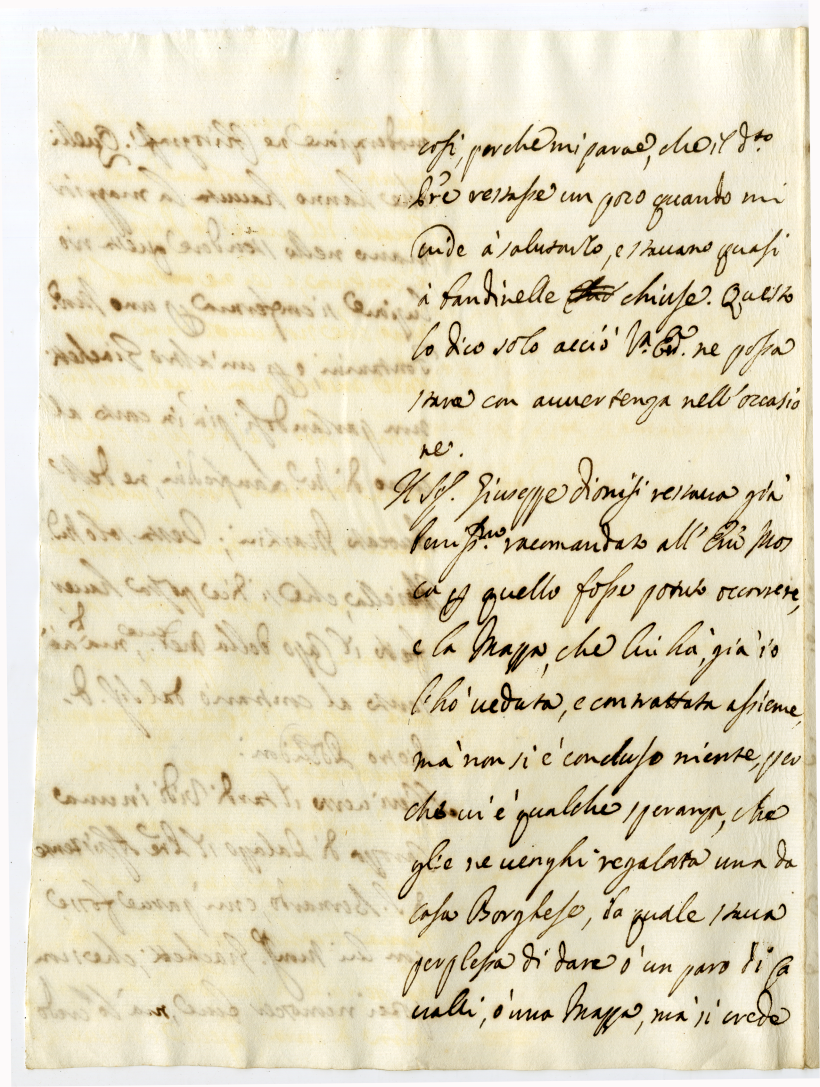 cosi, perche mi parve, che il d.to
Pre restasse un poco quando mi
vide à salutarlo, e stavano quasi
à bandinelle chiuse. Questo
lo dico solo acciò V.a Ecc. ne possa
stare con avvertenza nell'occasio
ne.
Il Sig.r Giuseppe Dionisi restava già
racomandato all' Emo Mos
ca p quello fosse potuto occorrere,
e la Mappa, che lui hà, già io
l'hò veduta, e contrattata assieme,
mà non si è concluso niente, per
che vi è qualche speranza, che
glie ne venghi regalata una da
casa Borghese, la quale stava
perplessa di dare ò un paro di Ca
valli, ò una Mappa, mà si crede